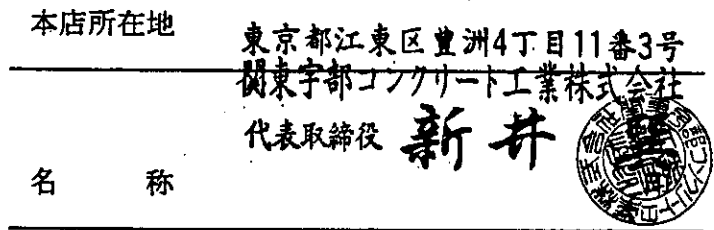 本店所在地
東京都江東区豊洲4丁目11番3号
関東宇部コンクリート工業株式会社
代表取締役 新井
名 称